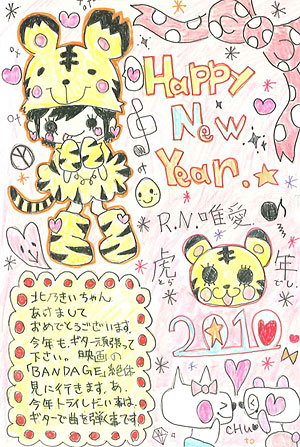 Happy
New
Year.
R.N 唯愛
虎 年
とら でし
2010
北乃きいちゃん
あけまして
おめでとうございます。
今年も、ギター頑張って
下さい。映画の
「BANDAGE」絶体
見に行きます。あ、
今年トライしたい事は、
ギターで曲を弾く事です
CHU